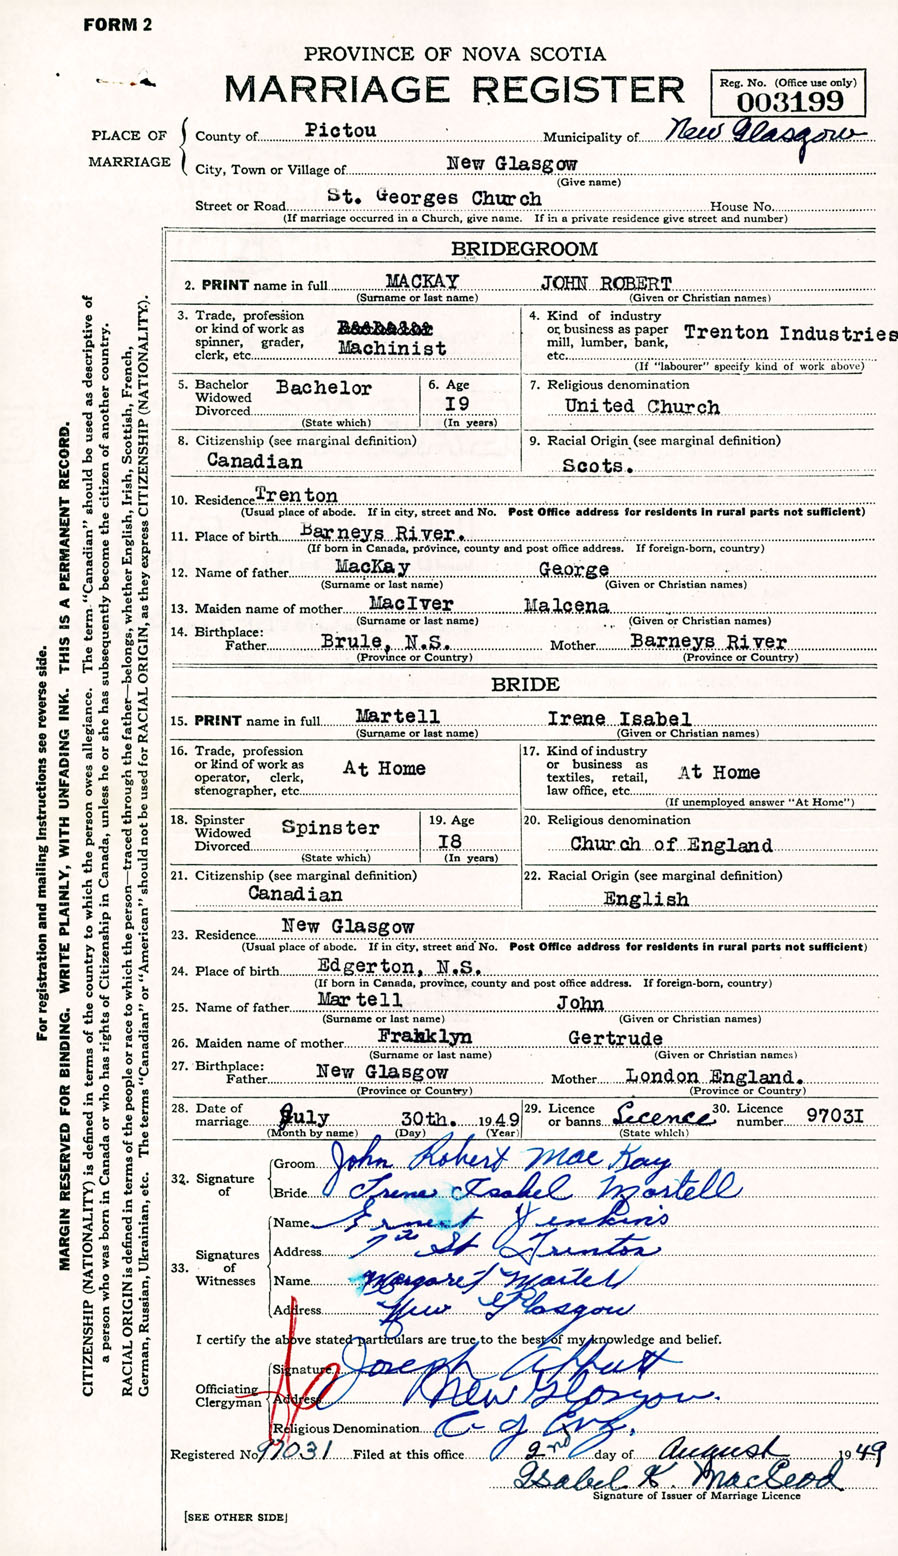 FORM 2
PROVINCE OF NOVA SCOTIA
MARRIAGE REGISTER
Reg. No. (Office use only)
003199
PLACE OF MARRIAGE
County of Pictou Municipality of New Glasgow
City, Town or Village of New Glasgow
(Give name)
Street or Road St. Georges Church House No.
(If marriage occurred in a Church, give name. If in a private residence give street and number)
BRIDEGROOM
2. PRINT name in full MACKAY JOHN ROBERT
(Surname or last name) (Given or Christian names)
3. Trade, profession or kind of work as spinner, grader, clerk, etc. Machinist
4. Kind of industry or business as paper mill, lumber, bank, etc. Trenton Industries
(If "labourer" specify kind of work above)
5. Bachelor Widowed Divorced Bachelor
(State which)
6. Age I9
(In years)
7. Religious denomination
United Church
8. Citizenship (see marginal definition)
Canadian
9. Racial Origin (see marginal definition)
Scots.
10. Residence Trenton
(Usual place of abode. If in city, street and No. Post Office address for residents in rural parts not sufficient)
11. Place of birth Barneys River.
(If born in Canada, province, county and post office address. If foreign-born, country)
12. Name of father MacKay George
(Surname or last name) (Given or Christian names)
13. Maiden name of mother MacIver Malcena
(Surname or last name) (Given or Christian names)
14. Birthplace:
Father Brule, N.S. Mother Barneys River
(Province or Country) (Province or Country)
BRIDE
15. PRINT name in full Martell Irene Isabel
(Surname or last name) (Given or Christian names)
16. Trade, profession or kind of work as operator, clerk, stenographer, etc. At Home
17. Kind of industry or business as textiles, retail, law office, etc. At Home
(If unemployed answer "At Home")
18. Spinster Widowed Divorced Spinster
(State which)
19. Age I8
(In years)
20. Religious denomination
Church of England
21. Citizenship (see marginal definition)
Canadian
22. Racial Origin (see marginal definition)
English
23. Residence New Glasgow
(Usual place of abode. If in city, street and No. Post Office address for residents in rural parts not sufficient)
24. Place of birth Edgerton, N.S.
(If born in Canada, province, county and post office address. If foreign-born, country)
25. Name of father Martell John
(Surname or last name) (Given or Christian names)
26. Maiden name of mother Franklyn Gertrude
(Surname or last name) (Given or Christian names)
27. Birthplace:
Father New Glasgow Mother London England.
(Province or Country) (Province or Country)
28. Date of marriage July 30th. 1949
(Month by name) (Day) (Year)
29. Licence or banns Licence
(State which)
30. Licence number 9703I
32. Signature of
Groom John Robert MacKay
Bride Irene Isabel Martell
33. Signatures of Witnesses
Name Ernest Jenkins
Address 7th St Trenton
Name Margaret Martel
Address New Glasgow
I certify the above stated particulars are true to the best of my knowledge and belief.
Officiating Clergyman
Signature Joseph
Address New Glasgow.
Religious Denomination C of Eng.
Registered No. 97031 Filed at this office 2nd day of August 1949
Isabel K. MacLeod
Signature of Issuer of Marriage Licence
[SEE OTHER SIDE]
For registration and mailing instructions see reverse side.
MARGIN RESERVED FOR BINDING. WRITE PLAINLY, WITH UNFADING INK. THIS IS A PERMANENT RECORD.
CITIZENSHIP (NATIONALITY) is defined in terms of the country to which the person owes allegiance. The term "Canadian" should be used as descriptive of
a person who was born in Canada or who has rights of Citizenship in Canada, unless he or she has subsequently become the citizen of another country.
RACIAL ORIGIN is defined in terms of the people or race to which the person—traced through the father—belongs, whether English, Irish, Scottish, French,
German, Russian, Ukrainian, etc. The terms "Canadian" or "American" should not be used for RACIAL ORIGIN, as they express CITIZENSHIP (NATIONALITY).